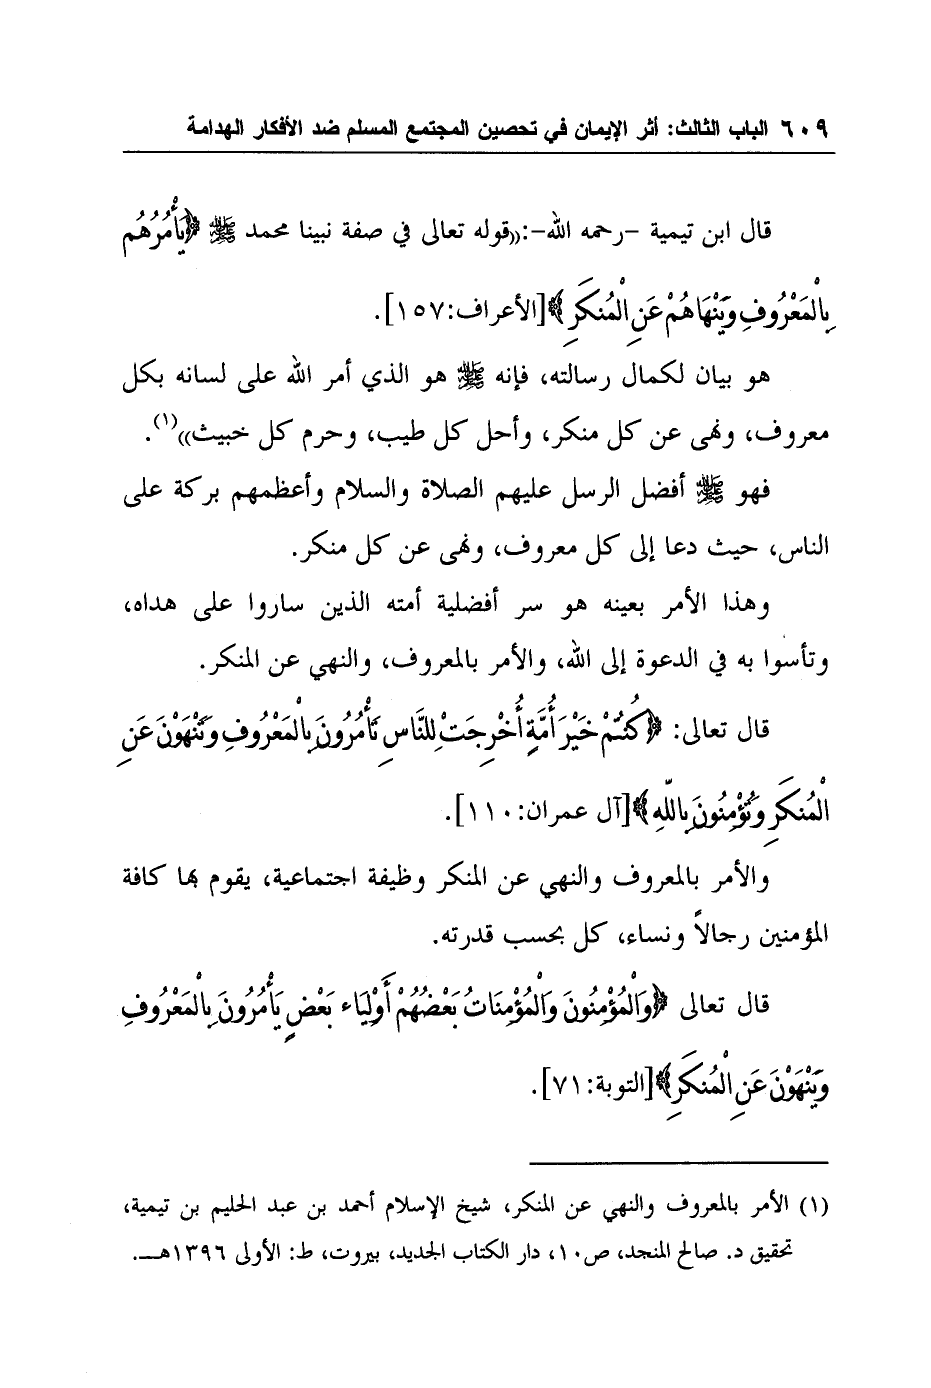 ٦٠٩ الباب الثالث: أثر الإيمان في تحصين المجتمع المسلم ضد الأفكار الهدامة
قال ابن تيمية –رحمه الله–:((قوله تعالى في صفة نبينا محمد ﷺ ﴿يَأْمُرُهُم
بِالْمَعْرُوفِ وَيَنْهَاهُمْ عَنِ الْمُنكَرِ﴾[الأعراف:١٥٧].
هو بيان لكمال رسالته، فإنه ﷺ هو الذي أمر الله على لسانه بكل
معروف، ونهى عن كل منكر، وأحل كل طيب، وحرم كل خبيث))(١).
فهو ﷺ أفضل الرسل عليهم الصلاة والسلام وأعظمهم بركة على
الناس، حيث دعا إلى كل معروف، ونهى عن كل منكر.
وهذا الأمر بعينه هو سر أفضلية أمته الذين ساروا على هداه،
وتأسوا به في الدعوة إلى الله، والأمر بالمعروف، والنهي عن المنكر.
قال تعالى: ﴿كُنتُمْ خَيْرَ أُمَّةٍ أُخْرِجَتْ لِلنَّاسِ تَأْمُرُونَ بِالْمَعْرُوفِ وَتَنْهَوْنَ عَنِ
الْمُنكَرِ وَتُؤْمِنُونَ بِاللّهِ﴾[آل عمران:١١٠].
والأمر بالمعروف والنهي عن المنكر وظيفة اجتماعية، يقوم بها كافة
المؤمنين رجالاً ونساء، كل بحسب قدرته.
قال تعالى ﴿وَالْمُؤْمِنُونَ وَالْمُؤْمِنَاتُ بَعْضُهُمْ أَوْلِيَاء بَعْضٍ يَأْمُرُونَ بِالْمَعْرُوفِ
وَيَنْهَوْنَ عَنِ الْمُنكَرِ﴾[التوبة:٧١].
(١) الأمر بالمعروف والنهي عن المنكر، شيخ الإسلام أحمد بن عبد الحليم بن تيمية،
تحقيق د. صالح المنجد، ص١٠، دار الكتاب الجديد، بيروت، ط: الأولى ١٣٩٦هـ.